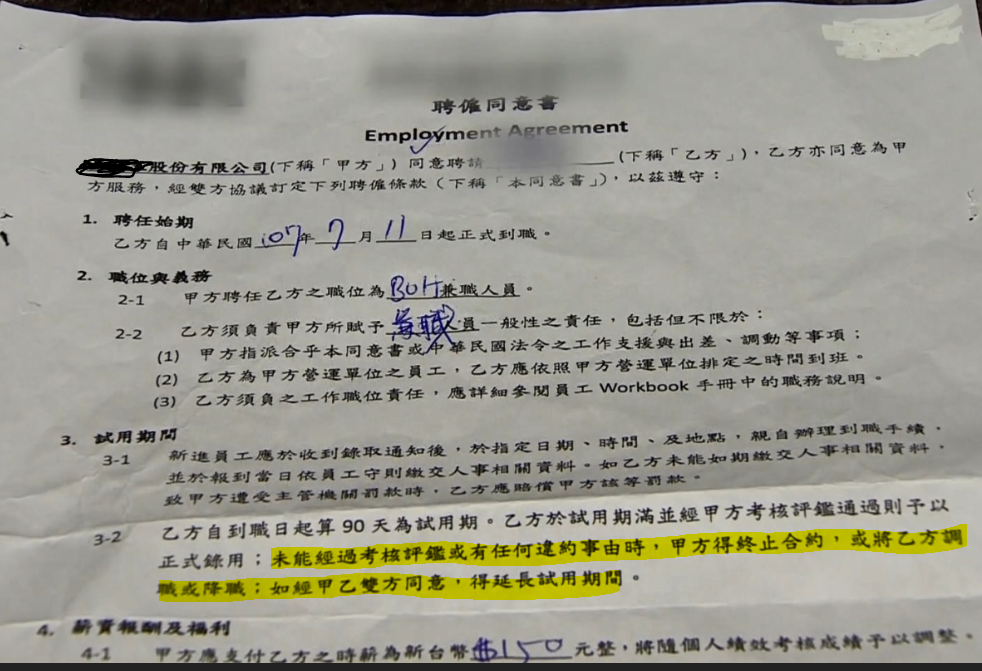 聘僱同意書
Employment Agreement
股份有限公司(下稱「甲方」)同意聘請(下稱「乙方」),乙方亦同意為甲
方服務,經雙方協議訂定下列聘僱條款(下稱「本同意書」),以茲遵守:
1. 聘任始期
乙方自中華民國107年7月11日起正式到職。
2. 職位與義務
2-1 甲方聘任乙方之職位為BOH兼職人員。
2-2 乙方須負責甲方所賦予兼職人員一般性之責任,包括但不限於:
(1) 甲方指派合乎本同意書或中華民國法令之工作支援與出差、調動等事項;
(2) 乙方為甲方營運單位之員工,乙方應依照甲方營運單位排定之時間到班。
(3) 乙方須負之工作職位責任,應詳細參閱員工 Workbook 手冊中的職務說明。
3. 試用期間
3-1 新進員工應於收到錄取通知後,於指定日期、時間、及地點,親自辦理到職手續,
並於報到當日依員工守則繳交人事相關資料。如乙方未能如期繳交人事相關資料,
致甲方遭受主管機關罰款時,乙方應賠償甲方該等罰款。
3-2 乙方自到職日起算 90 天為試用期。乙方於試用期滿並經甲方考核評鑑通過則予以
正式錄用;未能經過考核評鑑或有任何違約事由時,甲方得終止合約,或將乙方調
職或降職;如經甲乙雙方同意,得延長試用期間。
4. 薪資報酬及福利
4-1 甲方應支付乙方之時薪為新台幣$150元整,將隨個人績效考核成績予以調整。